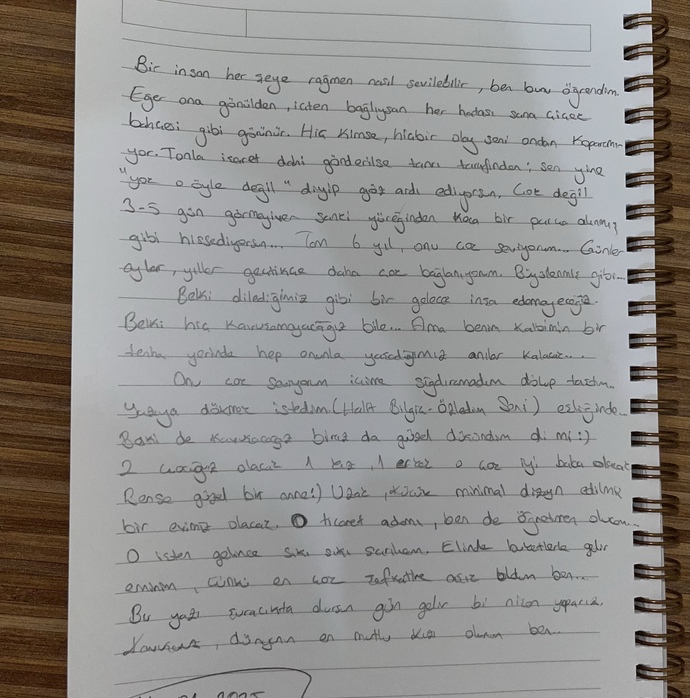 Bir insan her şeye rağmen nasıl sevilebilir, ben bunu öğrendim.
Eğer ona gönülden, içten bağlıysan her hatası sana çiçek
bahçesi gibi görünür. Hiç kimse, hiçbir olay seni ondan koparamı-
yor. Tonla işaret dahi gönderilse tanrı tarafından; sen yine
"yok o öyle değil" diyip göz ardı ediyorsun. Çok değil
3-5 gün görmeyiver sanki yüreğinden koca bir parça alınmış
gibi hissediyorsun... Tam 6 yıl, onu çok seviyorum... Günler
aylar, yıllar geçtikçe daha çok bağlanıyorum. gibi...
Belki dilediğimiz gibi bir gelecek inşa edemeyeceğiz.
Belki hiç kavuşamayacağız bile... Ama benim kalbimin bir
tenha yerinde hep onunla yaşadığımız anılar kalacak...
Onu çok seviyorum içime sığdıramadım dolup taştım..
yazıya dökmek istedim. (Halit Bilgiç-Özledim Seni) eşliğinde...
Belki de kavuşacağız biraz da güzel düşündüm di mi:)
2 çocuğumuz olacak 1 kız, 1 erkek o çok iyi baba olacak
Bense güzel bir anne:) Ufak, küçük minimal dizayn edilmiş
bir evimiz olacak. O ticaret adamı, ben de öğretmen olucam...
O işten gelince sıkı sıkı sarılıcam. Elinde buketlerle gelir
eminim, çünkü en çok şefkatine aşık oldum ben...
Bu yazı şuracıkta dursun gün gelir bi nizon yaparız.
Kavuşuruz, dünyanın en mutlu kızı olurum ben..
2025